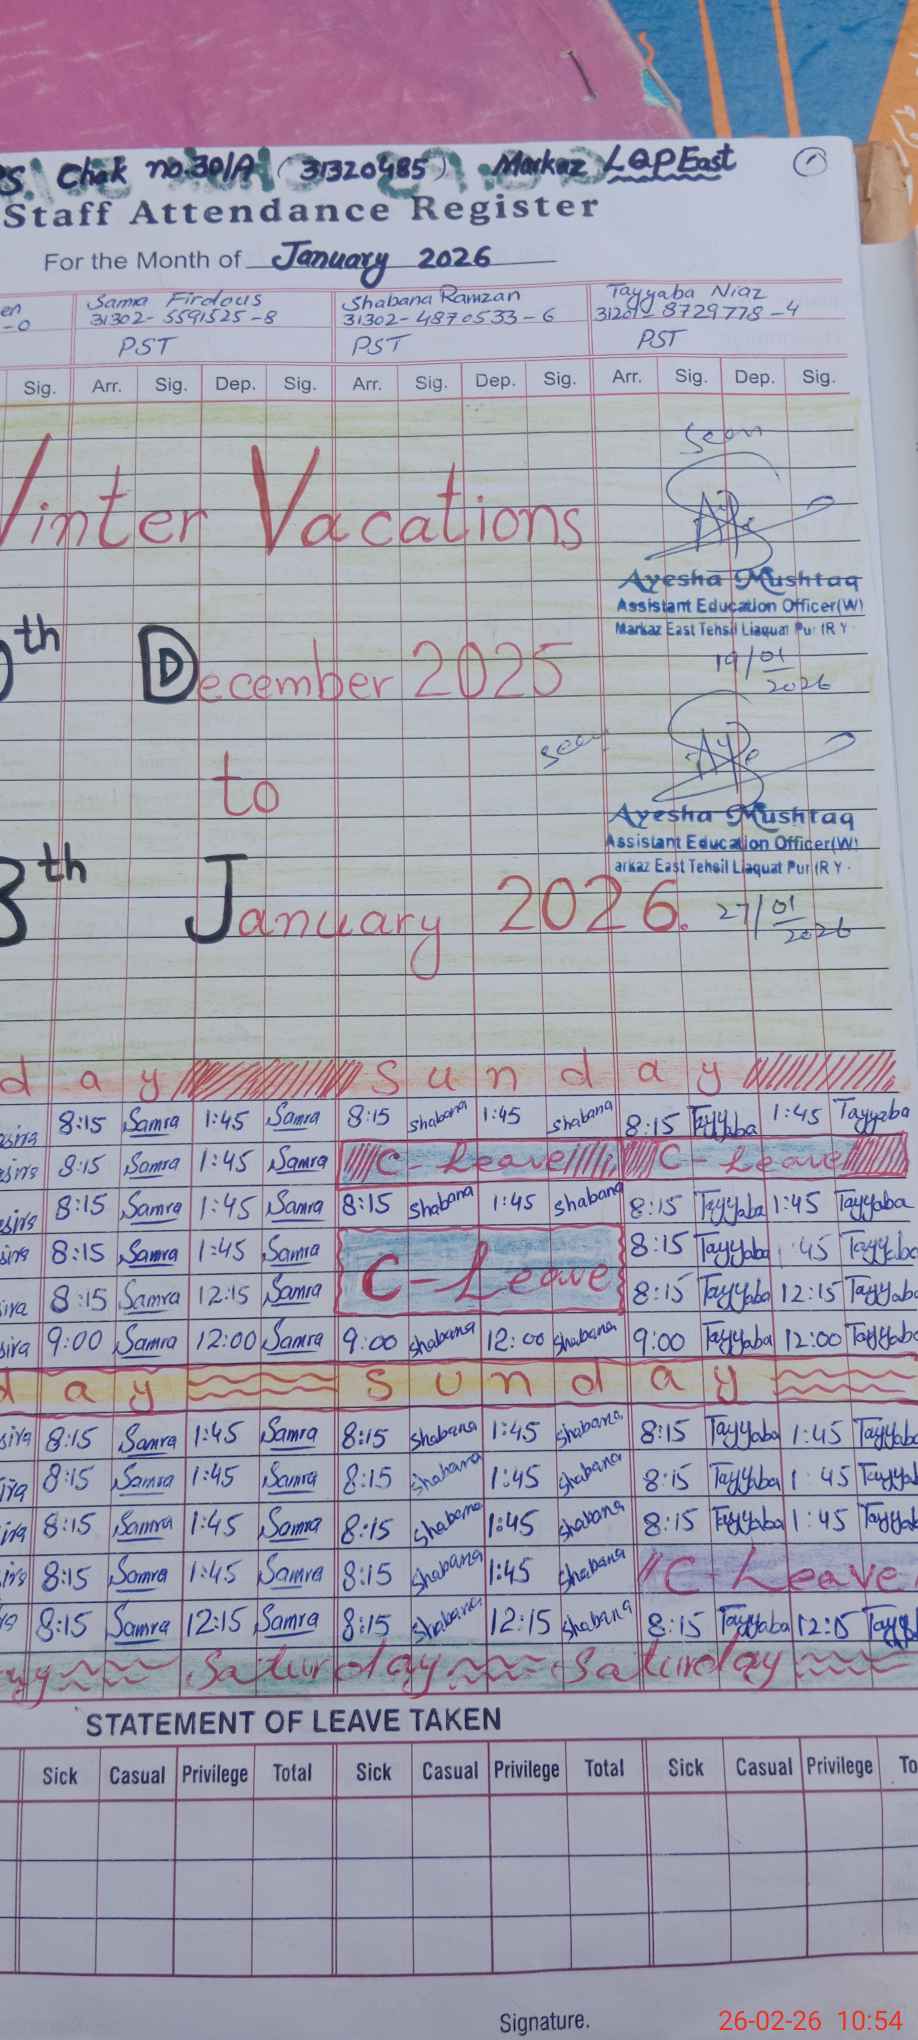 S. Chak no.30/A (31320485) Markaz LQP East
Staff Attendance Register
For the Month of January 2026
en Samra Firdous Shabana Ramzan Tayyaba Niaz
-0 31302-5591525-8 31302-4870533-6 31201-8729778-4
PST PST PST
Sig. Arr. Sig. Dep. Sig. Arr. Sig. Dep. Sig. Arr. Sig. Dep. Sig.
Seen
Winter Vacations
Ayesha Mushtaq
Assistant Education Officer(W)
Markaz East Tehsil Liaquat Pur (R Y
19/01
2026
th December 2025
Seen
to
Ayesha Mushtaq
Assistant Education Officer(W)
arkaz East Tehsil Liaquat Pur (R Y.
27/01
2026
8th January 2026.
d a y S u n d a y
8:15 Samra 1:45 Samra 8:15 Shabana 1:45 Shabana 8:15 Tayyaba 1:45 Tayyaba
8:15 Samra 1:45 Samra C-Leave C-Leave
8:15 Samra 1:45 Samra 8:15 Shabana 1:45 Shabana 8:15 Tayyaba 1:45 Tayyaba
8:15 Samra 1:45 Samra C-Leave 8:15 Tayyaba :45 Tayyaba
8:15 Samra 12:15 Samra 8:15 Tayyaba 12:15 Tayyaba
9:00 Samra 12:00 Samra 9:00 Shabana 12:00 Shabana 9:00 Tayyaba 12:00 Tayyaba
d a y S u n d a y
8:15 Samra 1:45 Samra 8:15 Shabana 1:45 Shabana 8:15 Tayyaba 1:45 Tayyaba
8:15 Samra 1:45 Samra 8:15 Shabana 1:45 Shabana 8:15 Tayyaba 1:45 Tayyaba
8:15 Samra 1:45 Samra 8:15 Shabana 1:45 Shabana 8:15 Tayyaba 1:45 Tayyab
8:15 Samra 1:45 Samra 8:15 Shabana 1:45 Shabana C-Leave
8:15 Samra 12:15 Samra 8:15 Shabana 12:15 Shabana 8:15 Tayyaba 12:15 Tayy
ay Saturday Saturday
STATEMENT OF LEAVE TAKEN
Sick Casual Privilege Total Sick Casual Privilege Total Sick Casual Privilege To
Signature.
26-02-26 10:54